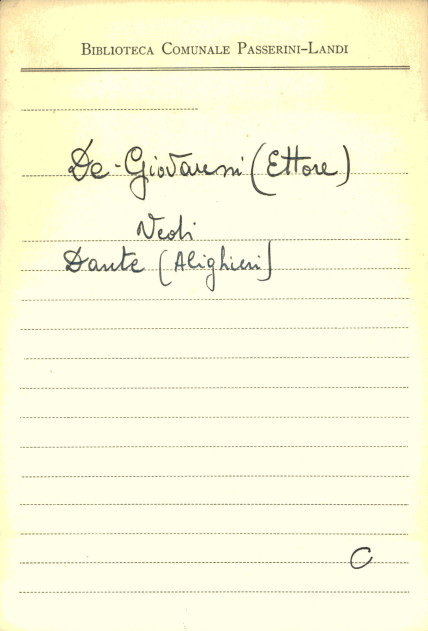 BIBLIOTECA COMUNALE PASSERINI-LANDI
De-Giovanni (Ettore)
Vedi
Dante (Alighieri)
C